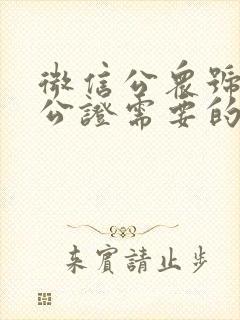 微信公眾號
公證需要的
来賓請止步